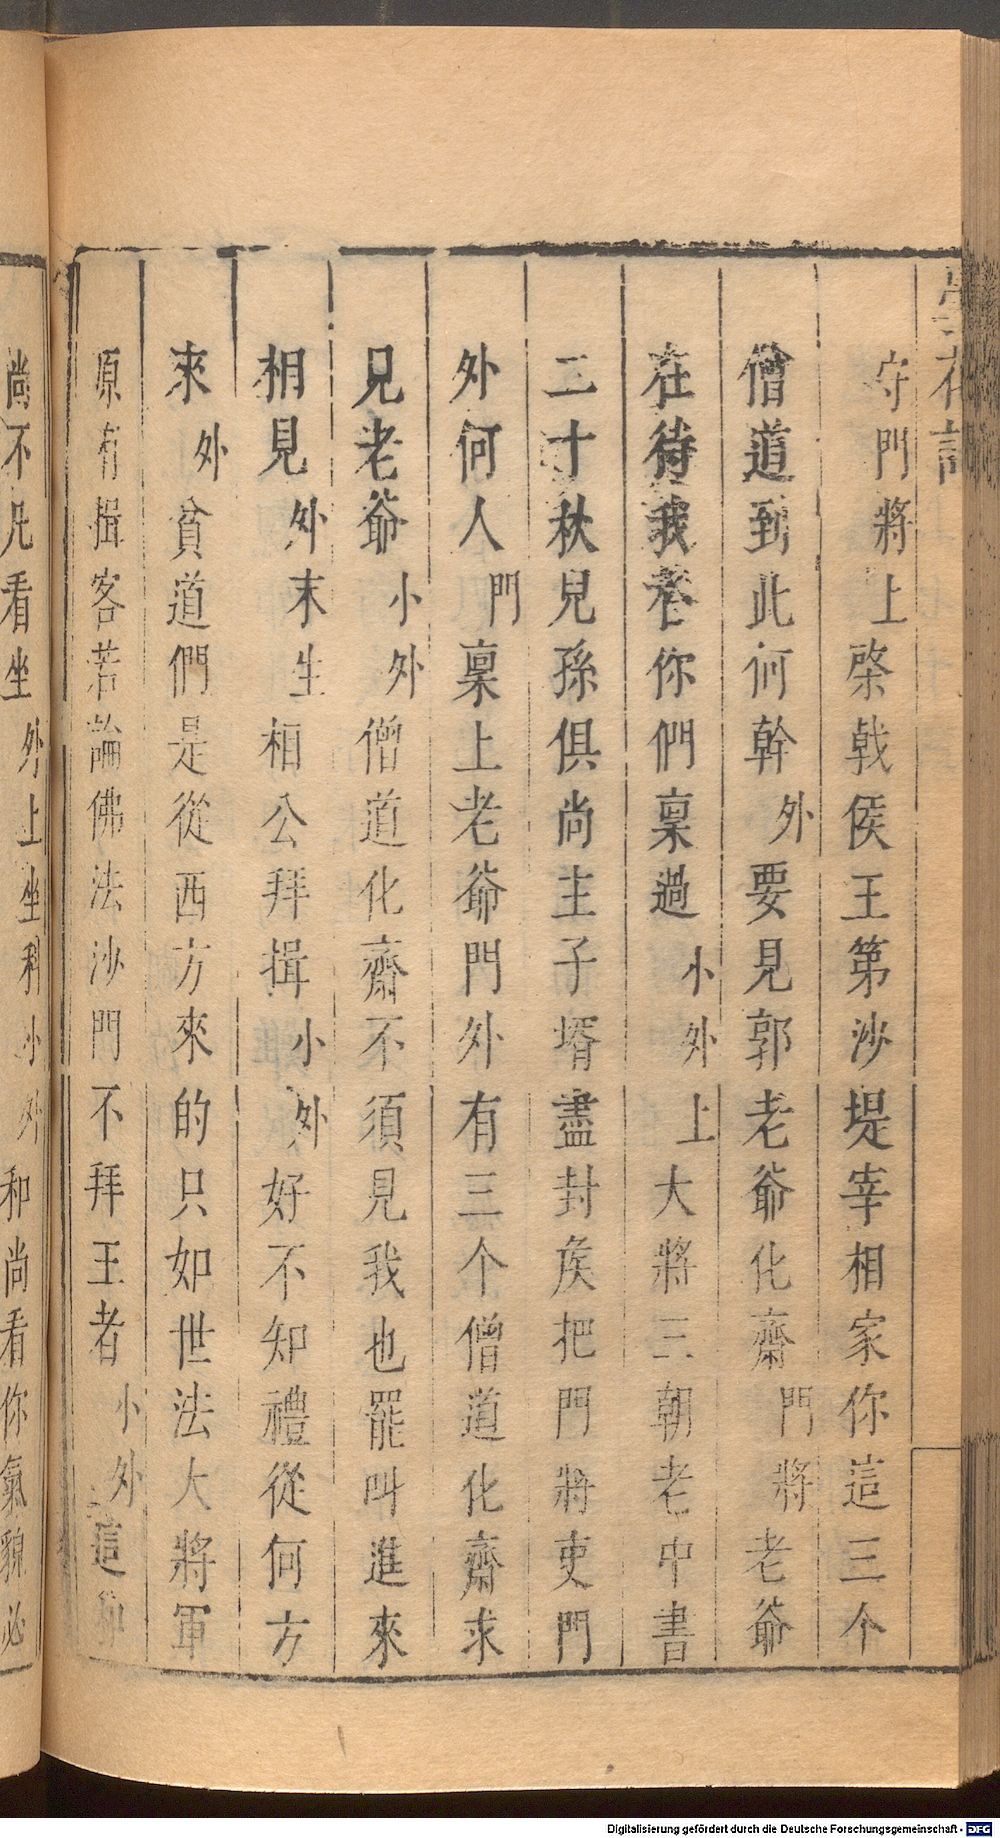 守門將上棨戟侯王第沙堤宰相家你這三个
僧道到此何幹外要見郭老爺化齋門將老爺
在待我老你們稟過小外上大將三朝老中書
二十秋兒孫俱尚主子壻盡封侯把門將吏門
外何人門稟上老爺門外有三个僧道化齋求
見老爺小外僧道化齋不須見我也罷叫進來
相見外末生相公拜揖小外好不知禮從何方
來外貧道們是從西方來的只如世法大將軍
原有揖客若論佛法沙門不拜王者小外這
尚不凡看坐外上坐科小外和尚看你氣貌必
Digitalisierung gefördert durch die Deutsche Forschungsgemeinschaft - DFG